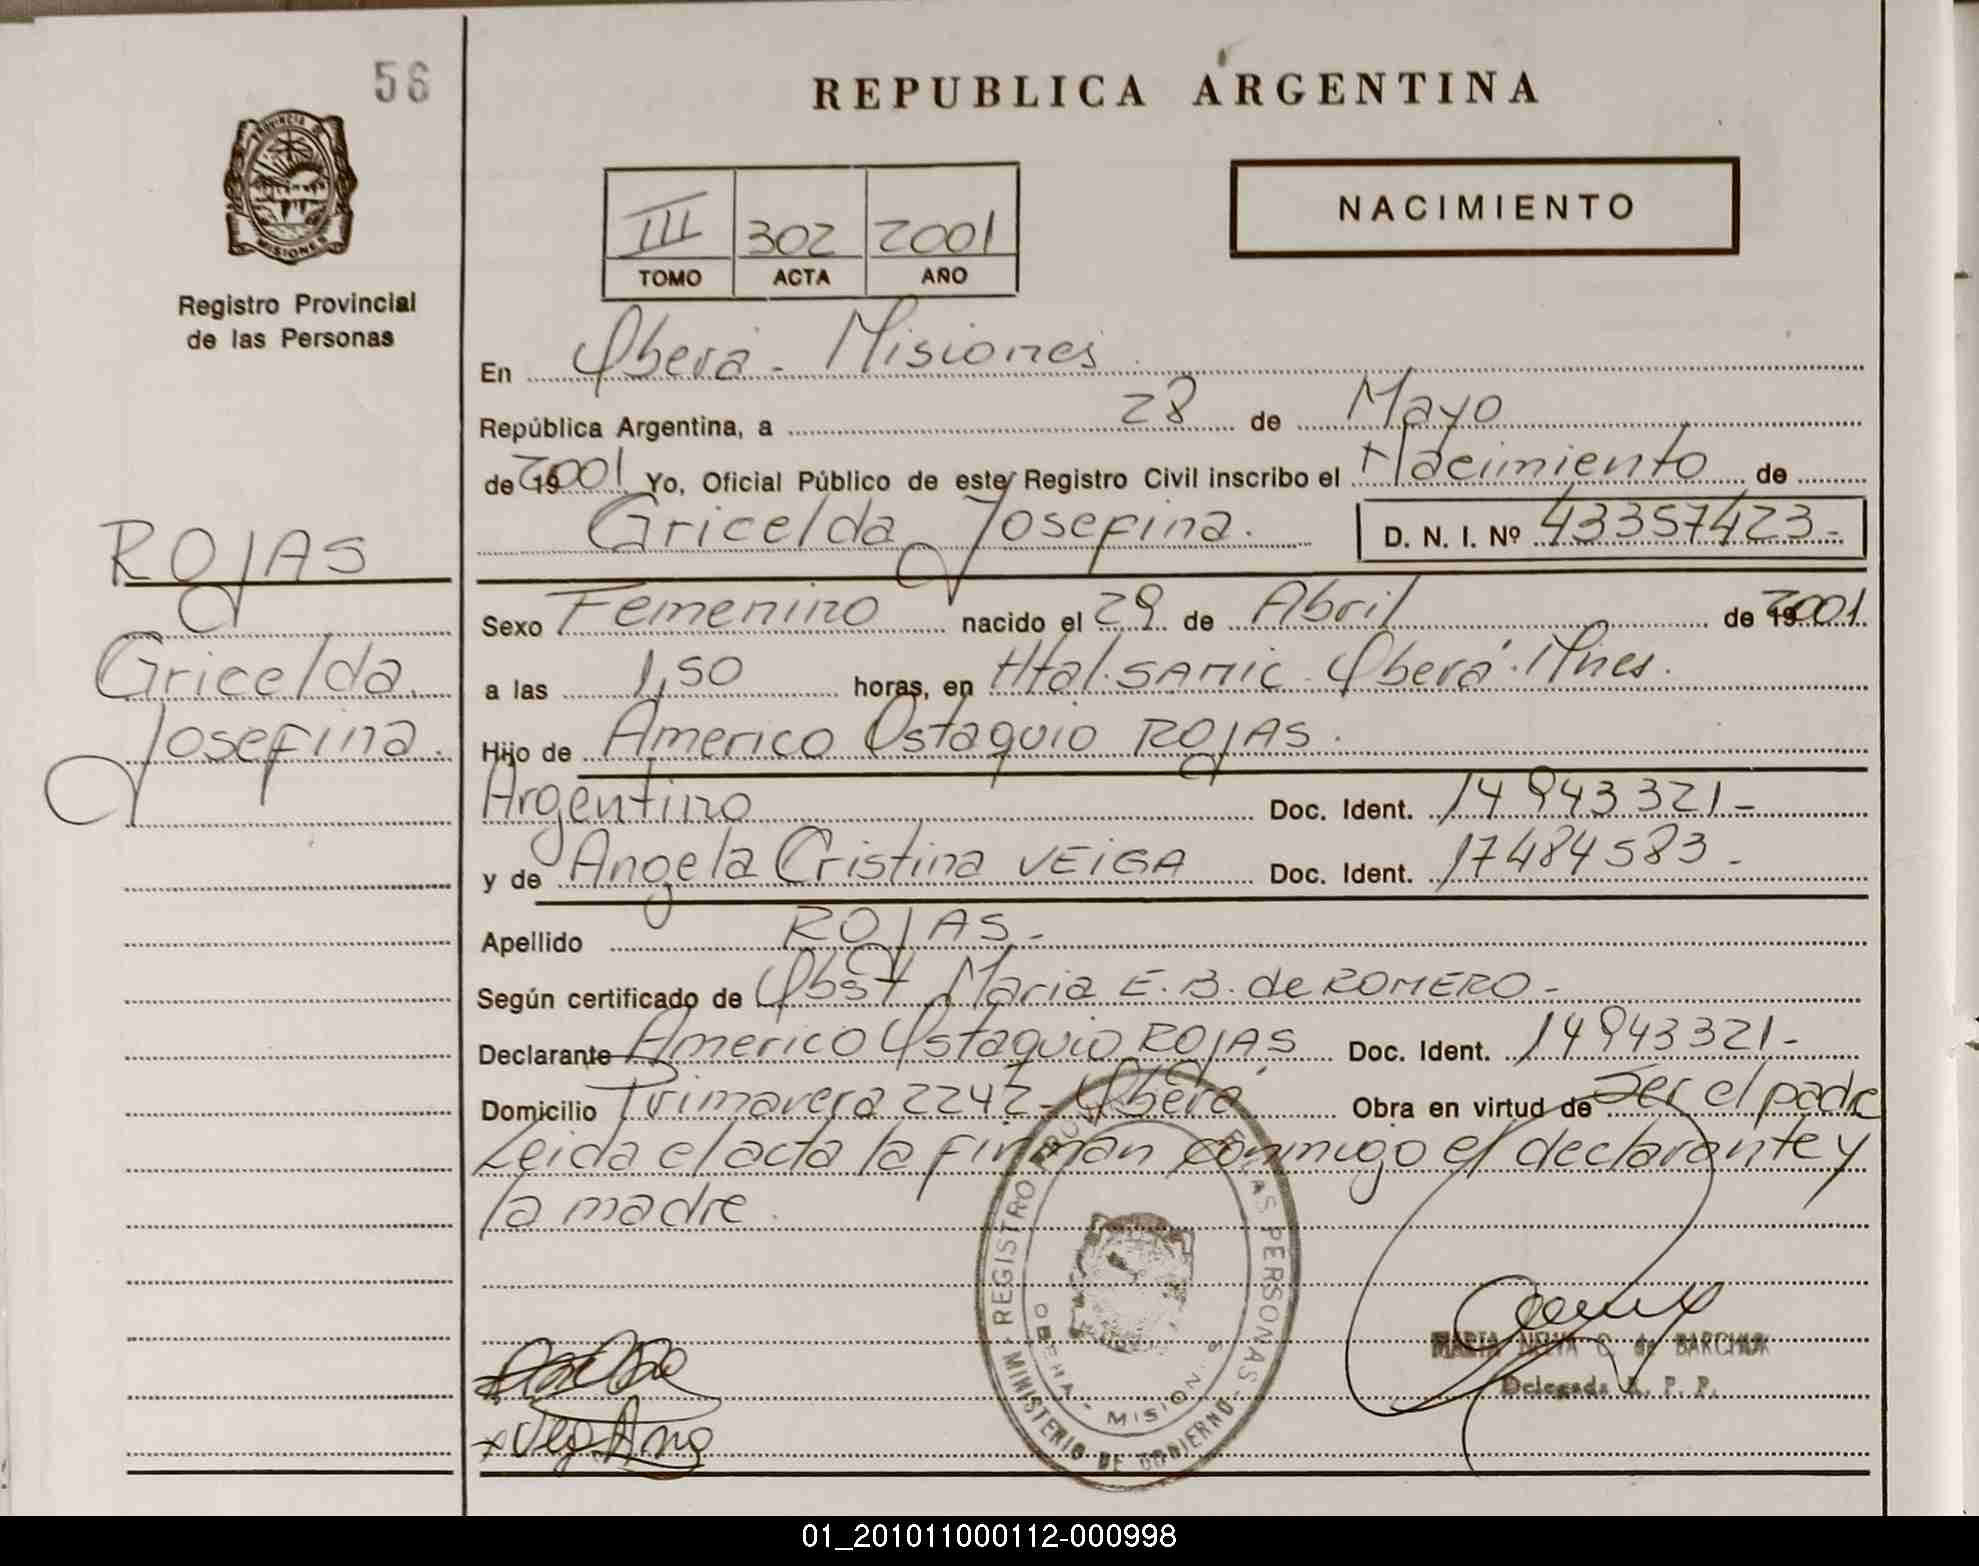 56
REPUBLICA ARGENTINA
PROVINCIA DE
MISIONES
Registro Provincial
de las Personas
III 302 2001
TOMO ACTA AÑO
NACIMIENTO
En Oberá - Misiones
República Argentina, a 28 de Mayo
de 2001 Yo, Oficial Público de este Registro Civil inscribo el Nacimiento de
Gricelda Josefina. D. N. I. Nº 43357423-
ROJAS
Gricelda
Josefina.
Sexo Femenino nacido el 29 de Abril de 2001.
a las 1,50 horas, en Htal. SAMIC - Oberá. Mnes.
Hijo de Americo Ostaquio ROJAS.
Argentino Doc. Ident. 14943321-
y de Angela Cristina VEIGA Doc. Ident. 17484583-
Apellido ROJAS-
Según certificado de Obst Maria E. B. de ROMERO-
Declarante Americo Ostaquio ROJAS Doc. Ident. 14943321-
Domicilio Primavera 2242 - Oberá Obra en virtud de Ser el padre
Leida el acta la firman conmigo el declarante y
la madre.
REGISTRO PERSONAS
MINISTERIO DE GOBIERNO
de BARCHUK
Delegada R. P. P.
01_201011000112-000998